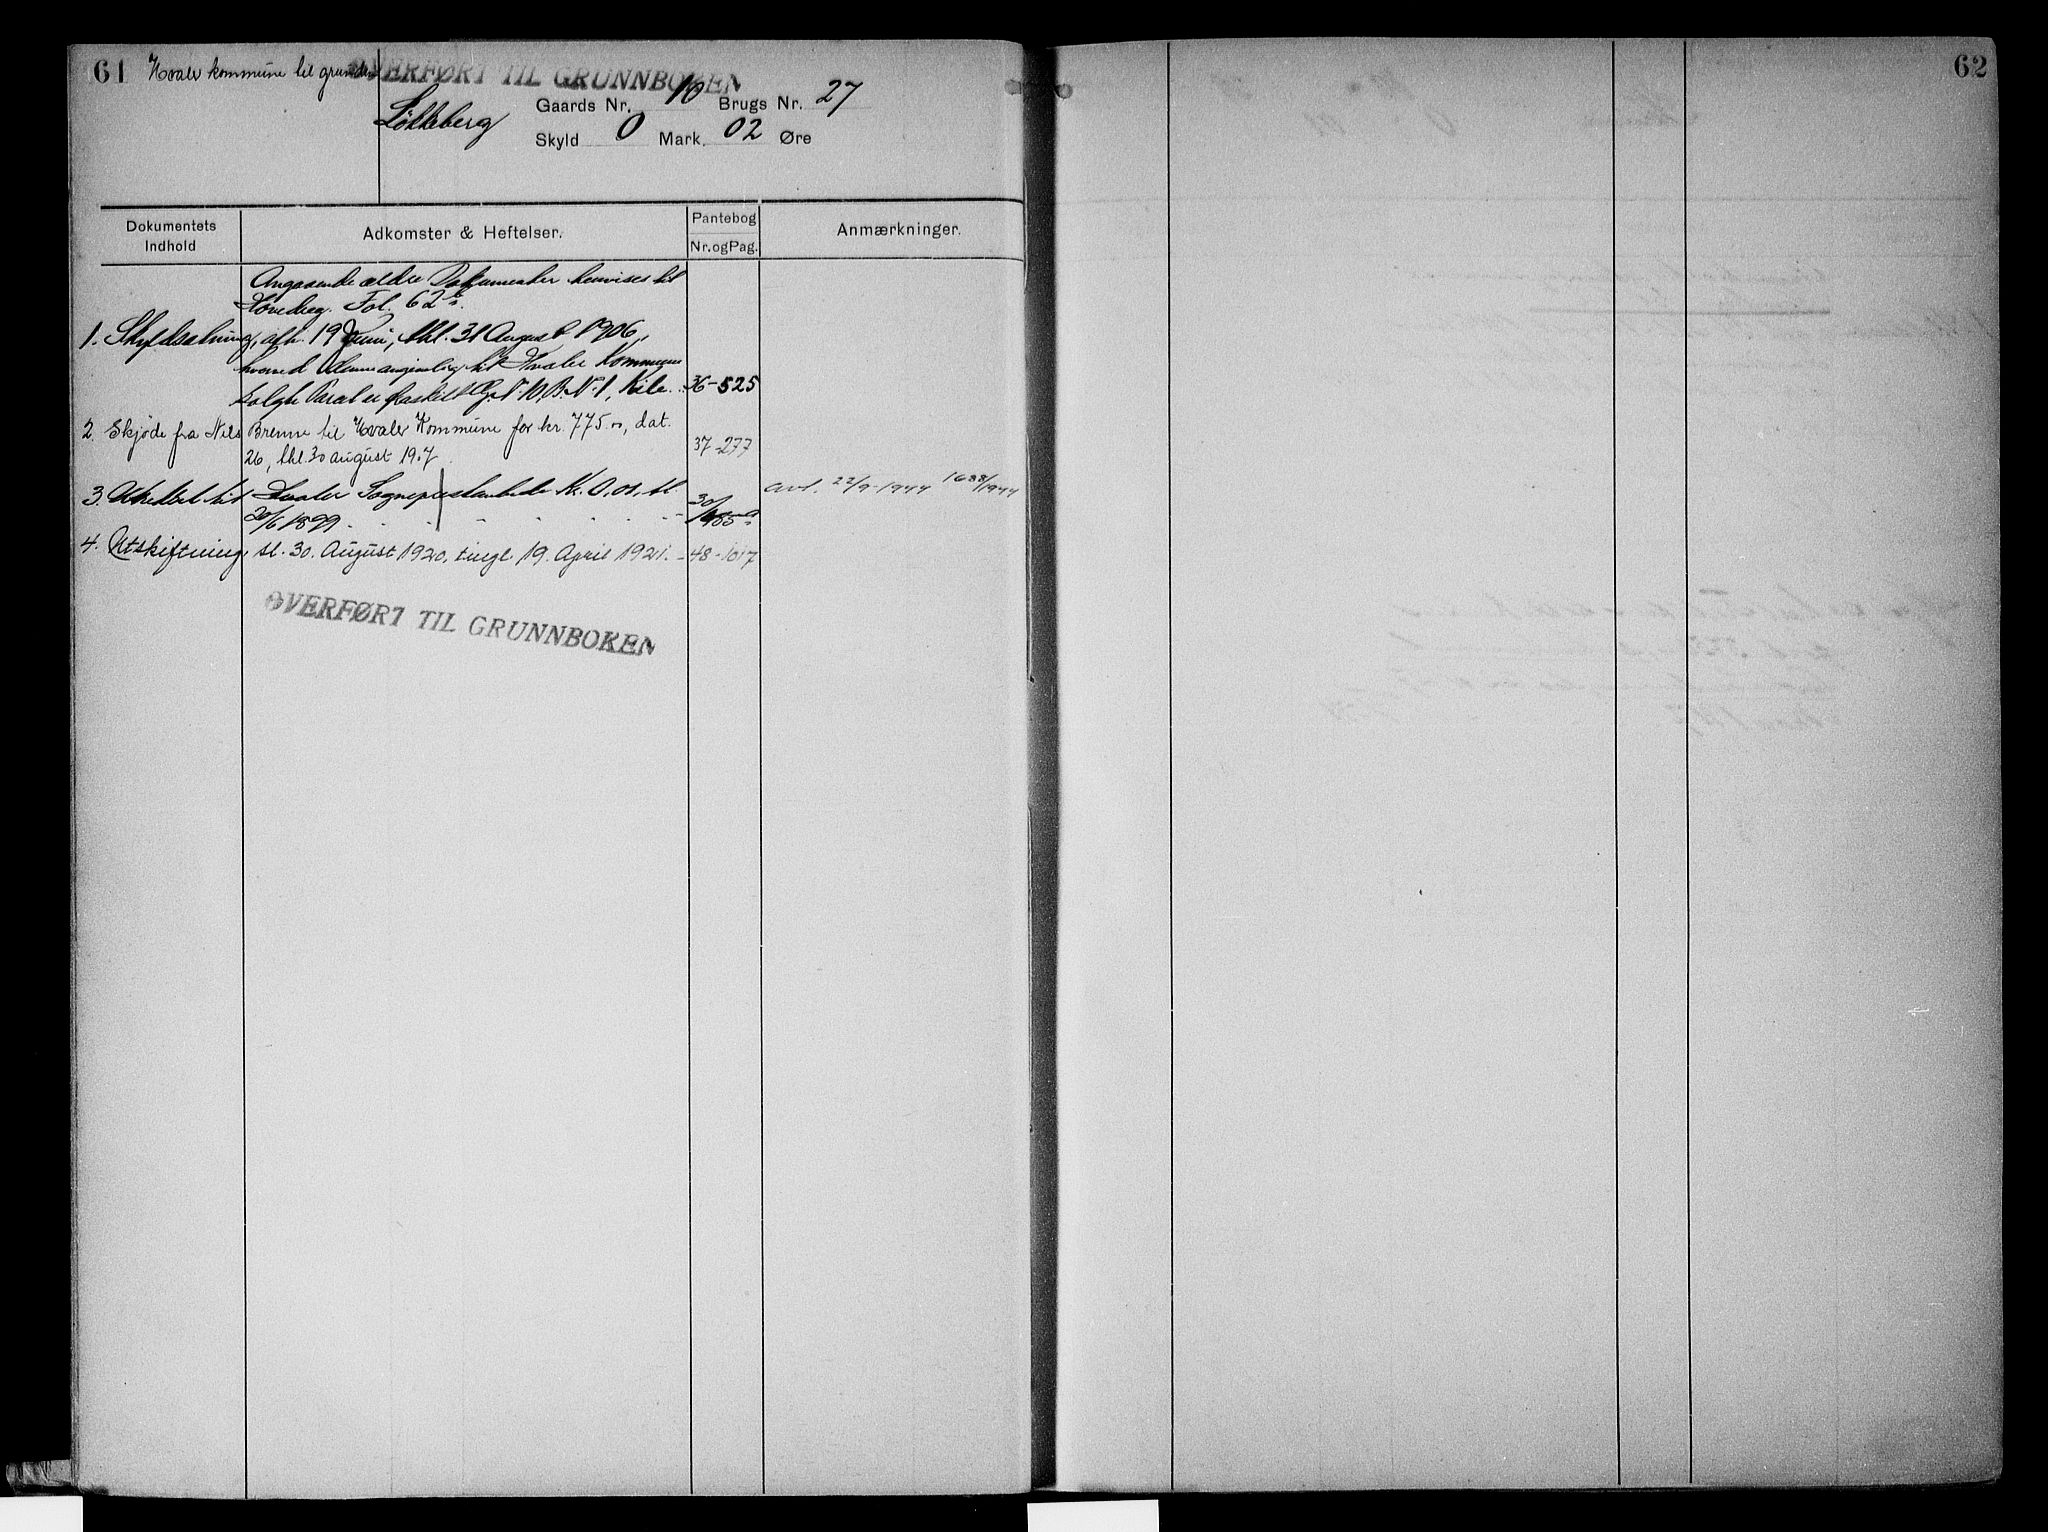 61 Hvaler kommune til grunden
OVERFØRT TIL GRUNNBOKEN
Gaards Nr. 10 Brugs Nr. 27
Løkkeberg
Skyld 0 Mark. 02 Øre
Dokumentets Indhold
Adkomster & Heftelser.
Pantebog
Nr. og Pag.
Anmærkninger.
Angaaende ældre Dokumenter henvises til
Hovedreg. Fol. 62
1. Skyldsætning, afh. 19 Juni, thl. 31 August 1906,
hvorved denne angivelig til Hvaler Kommune
solgte Parcel er fraskilt G. N. 10, B. N. 1, Kile. 36-525
2. Skjøde fra Nils Brenne til Hvaler Kommune for kr. 775.00, dat.
26, thl. 30 august 1907. 37-277
3. til Hvaler Sogneprestembede Kr. 0,01, tl. avl. 22/9-1944 1688/1944
20/6 1899 30/
4. Utskiftning, sl. 30. August 1920, tingl. 19. April 1921. - 48-1017
OVERFØRT TIL GRUNNBOKEN
62